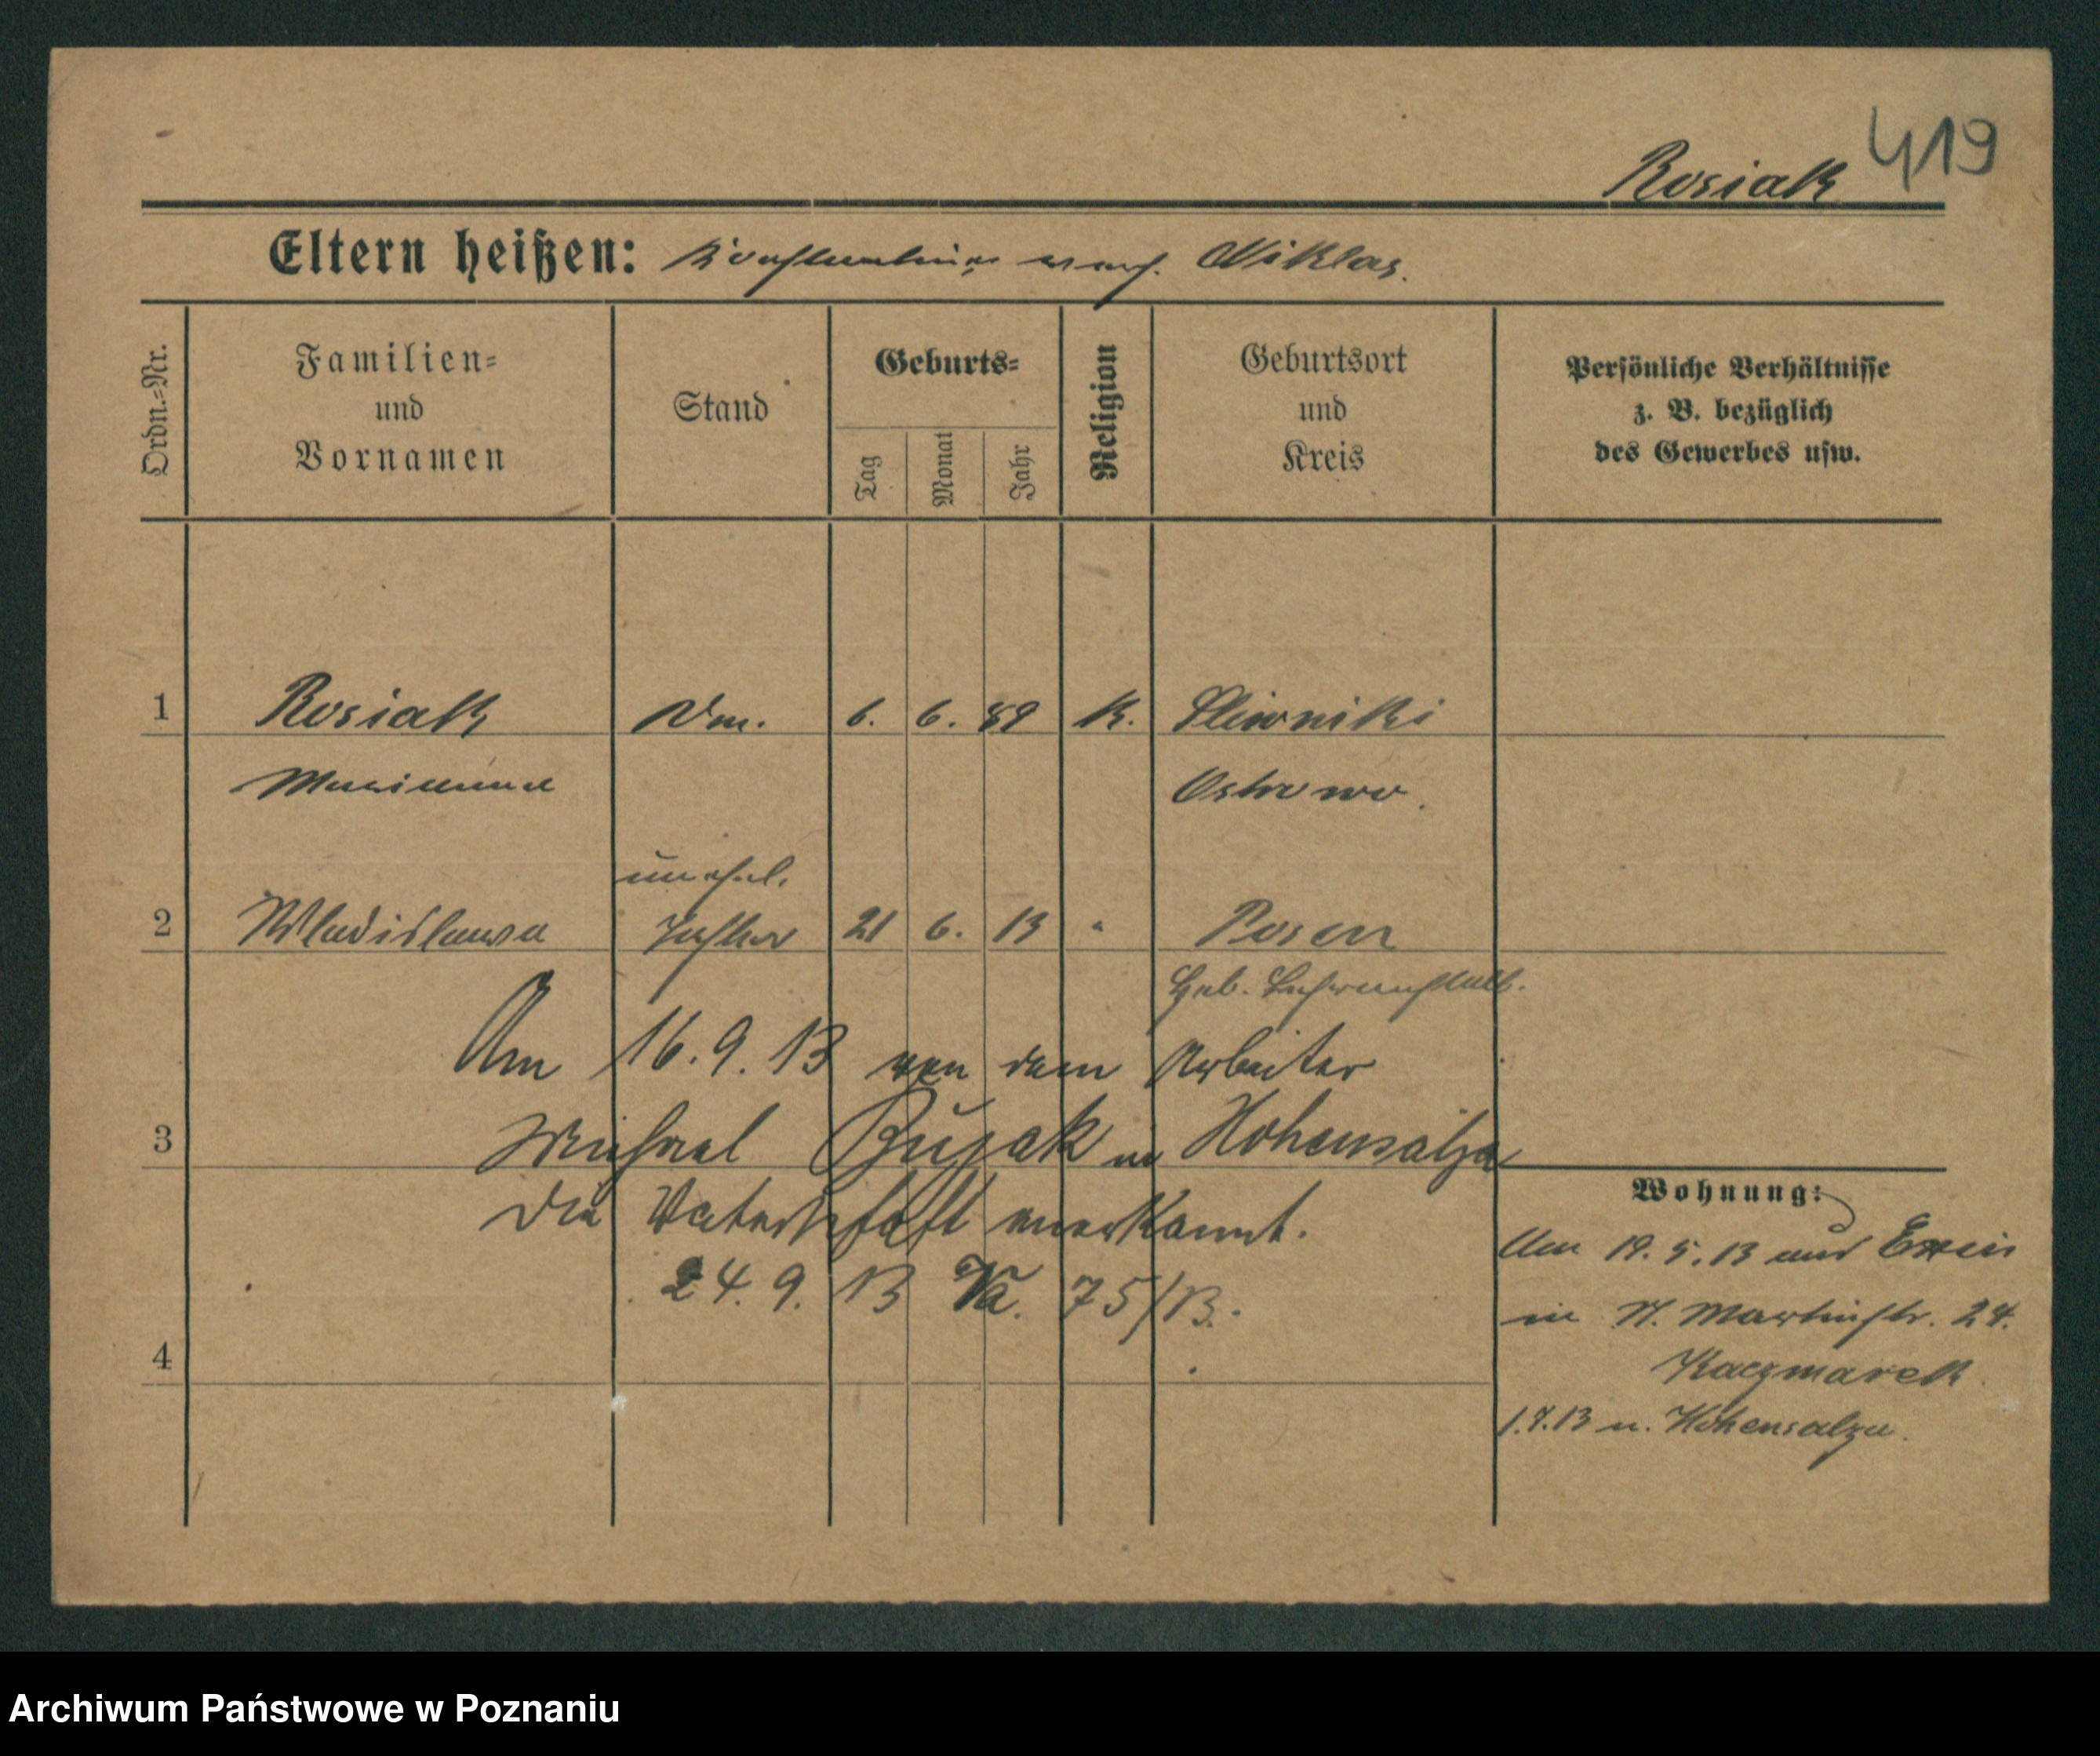 419
Rosiak
Eltern heißen: Miklas.
Ordn.=Nr.
Familien=
und
Vornamen
Stand
Geburts=
Tag
Monat
Jahr
Religion
Geburtsort
und
Kreis
Persönliche Verhältnisse
z. B. bezüglich
des Gewerbes usw.
1 Rosiak 6. 6. 89 K. Sliwniki
Ostrowo.
unehel.
2 Wladislawa Tochter 21 6. 13 " Posen
Heb. Lehranstalt.
Am 16.9.13 von dem Arbeiter
3 Michael Bujak in Hohensalza
Die Vaterschaft anerkannt.
24.9.13 75/13.
4
Wohnung:
Am 19.5.13 aus Exin
in St. Martinstr. 24.
Kaczmarek.
1.7.13 n. Hohensalza.
Archiwum Państwowe w Poznaniu